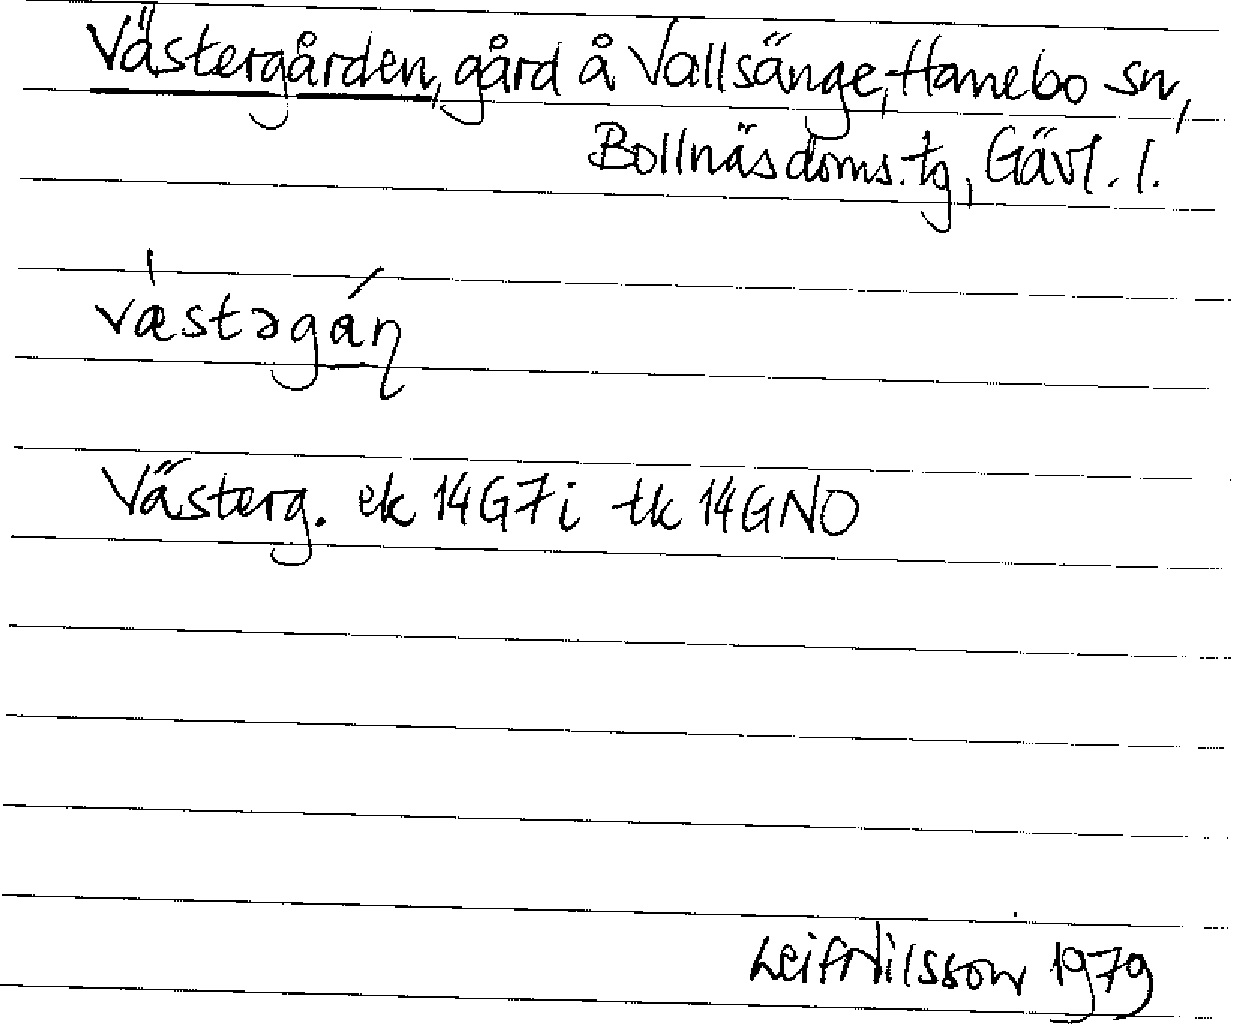 Västergården, gård å Vallsänge, Hanebo sn,
Bollnäs doms.tg, Gävl. l.
va̍stəgá̱ɳ
Västerg. ek 14G7i tk 14GNO
Leif Nilsson 1979